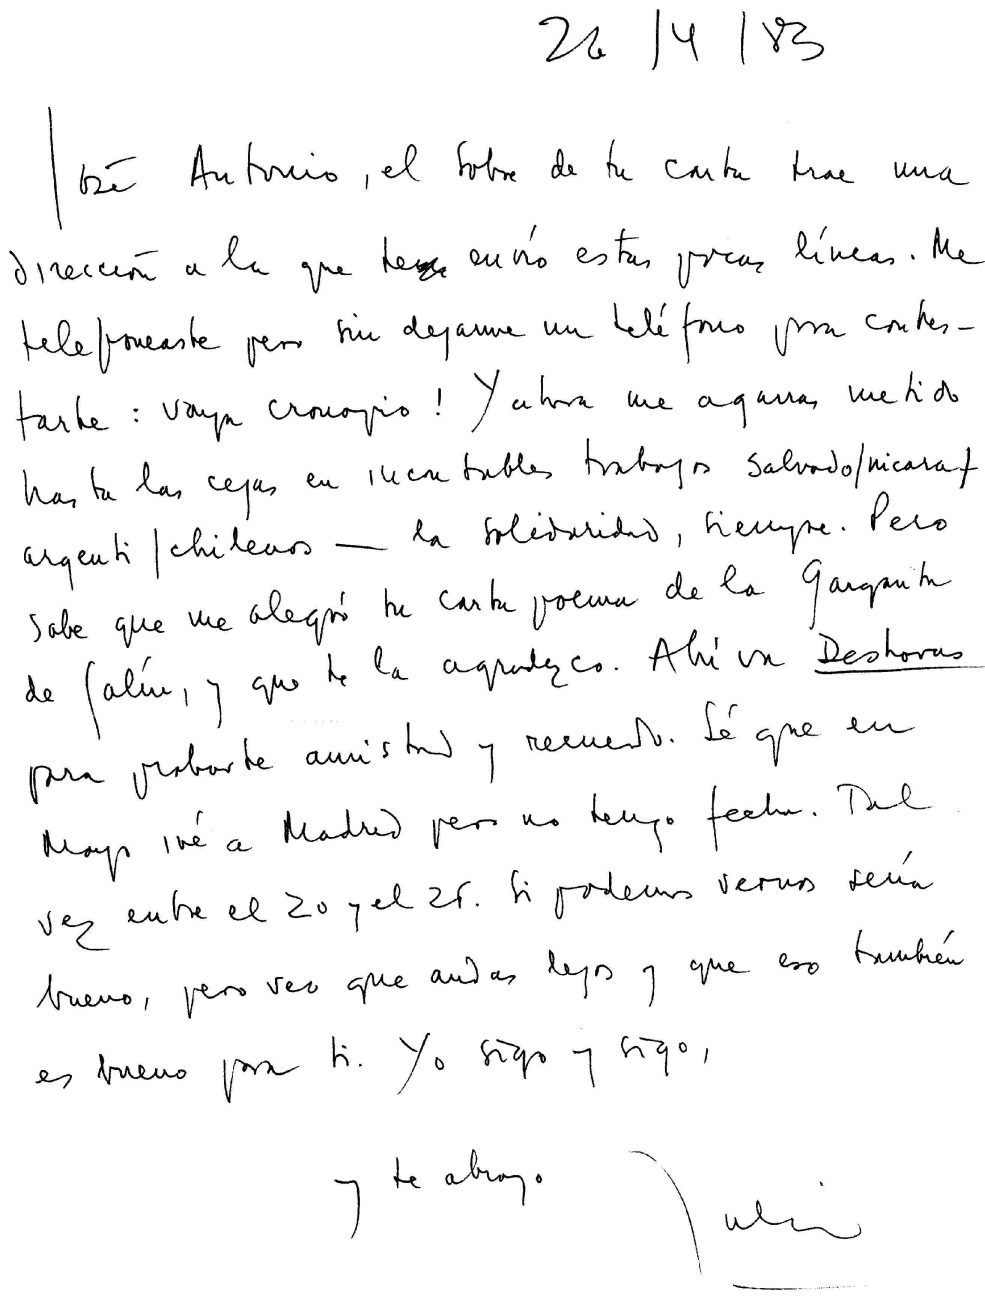 26/4/83
José Antonio, el sobre de tu carta trae una
dirección a la que te envío estas pocas líneas. Me
telefoneaste pero sin dejarme un teléfono para contes-
tarte: vaya cronopio! Y ahora me agarras metido
hasta las cejas en incontables trabajos salvado/nicara/
argenti/chilenos — la solidaridad, siempre. Pero
sabe que me alegró tu carta poema de la Garganta
de Galín, y que te la agradezco. Ahí va Deshoras
para probarte amistad y recuerdo. Sé que en
Mayo iré a Madrid pero no tengo fecha. Tal
vez entre el 20 y el 25. Si podemos vernos sería
bueno, pero veo que andas lejos y que eso también
es bueno para ti. Yo sigo y sigo,
y te abrazo.
Julio